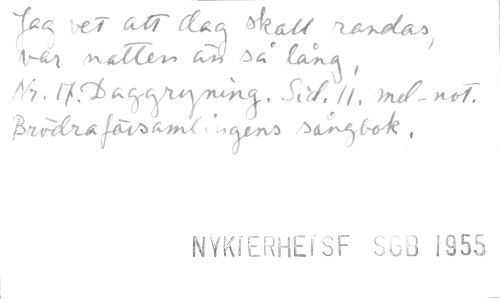 Jag vet att dag skall randas,
var natten än så lång,
Nr. 17. Daggryning. Sid. 11. mel-not.
Brödraförsamlingens sångbok.
NYKTERHETSF SGB 1955